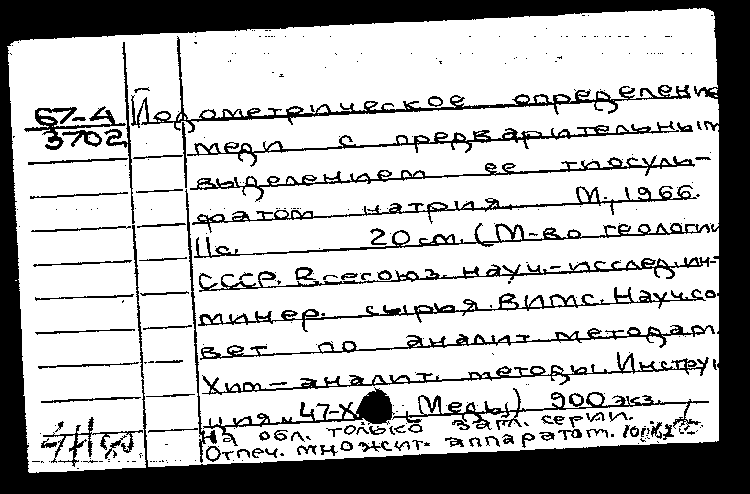 67-4 Йодометрическое определение
3702 меди с предварительным
выделением ее тиосуль-
фатом натрия. М., 1966.
11с. 20 см. (М-во геологии
СССР. Всесоюз. науч.-исслед. ин-
минер. сырья. ВИМС. Науч. со
вет по аналит. методам.
Хим-аналит. методы. Инструк
ция 47-Х, Медь) 900 экз.
На обл. только загл. серии.
Отпеч. множит. аппаратом.